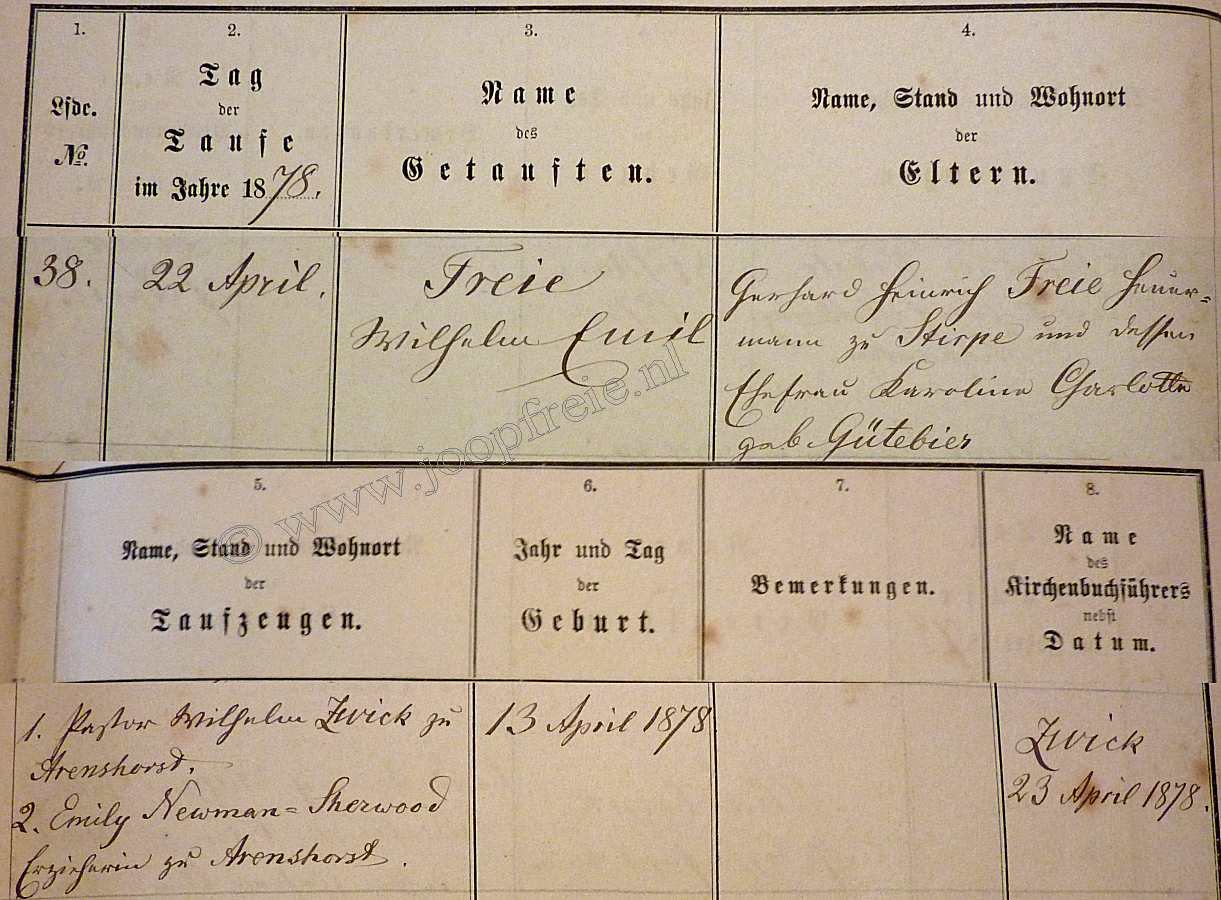 1.
2.
3.
4.
Lfde.
№.
Tag
der
Taufe
im Jahre 1878.
Name
des
Getauften.
Name, Stand und Wohnort
der
Eltern.
38.
22 April.
Freie
Wilhelm Emil
Gerhard Heinrich Freie Heuer=
mann zu Stirpe und dessen
Ehefrau Karoline Charlotte
geb. Gütebier
© www.joopfreie.nl
5.
6.
7.
8.
Name, Stand und Wohnort
der
Taufzeugen.
Jahr und Tag
der
Geburt.
Bemerkungen.
Name
des
Kirchenbuchführers
nebst
Datum.
1. Pastor Wilhelm Zwick zu
Arenshorst.
2. Emily Newman=Sherwood
Erzieherin zu Arenshorst.
13 April 1878
Zwick
23 April 1878.